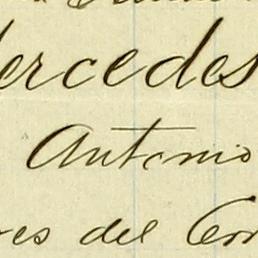 ercedes
Antonio
es del Cor